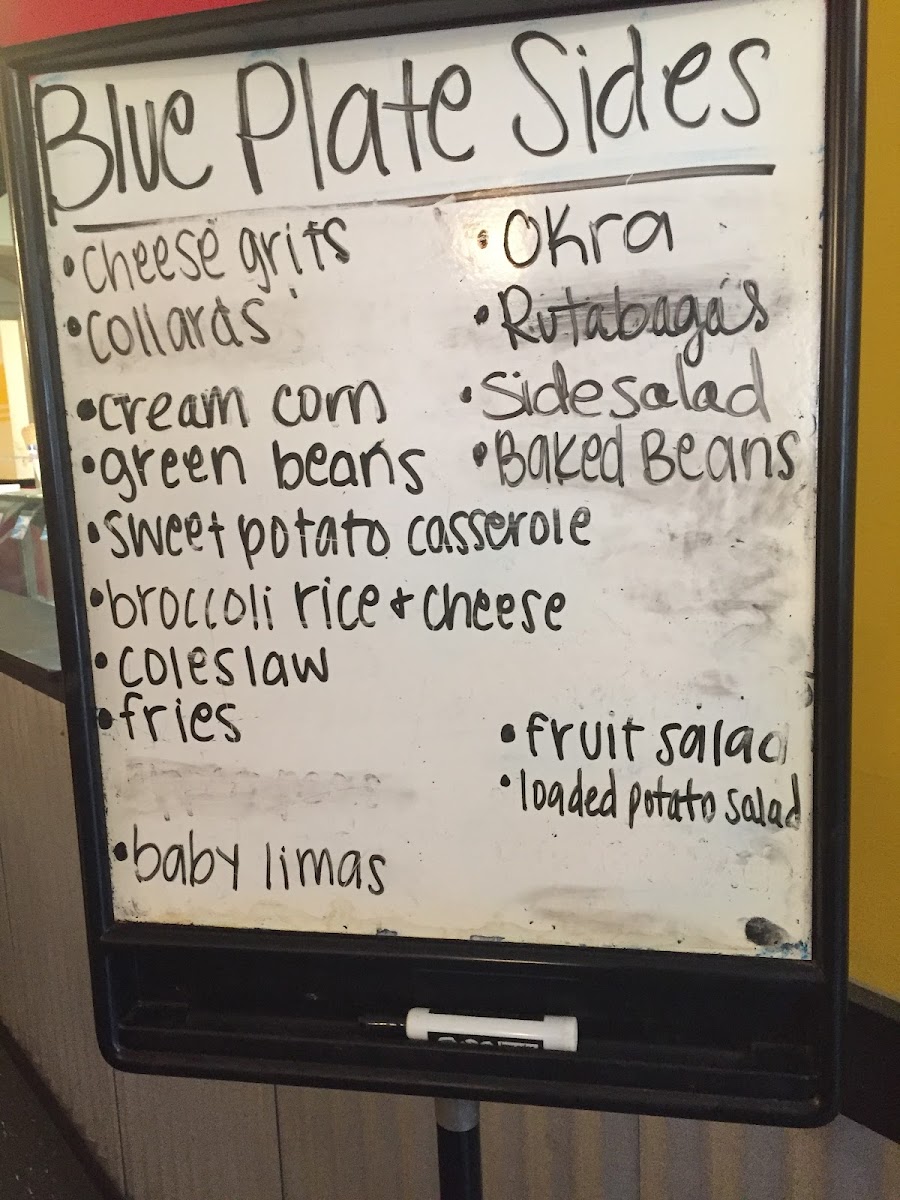 Blue Plate Sides
• cheese grits
• collards
• cream corn
• green beans
• sweet potato casserole
• broccoli rice & cheese
• coleslaw
• fries
• baby limas
• Okra
• Rutabagas
• Side salad
• Baked Beans
• fruit salad
• loaded potato salad